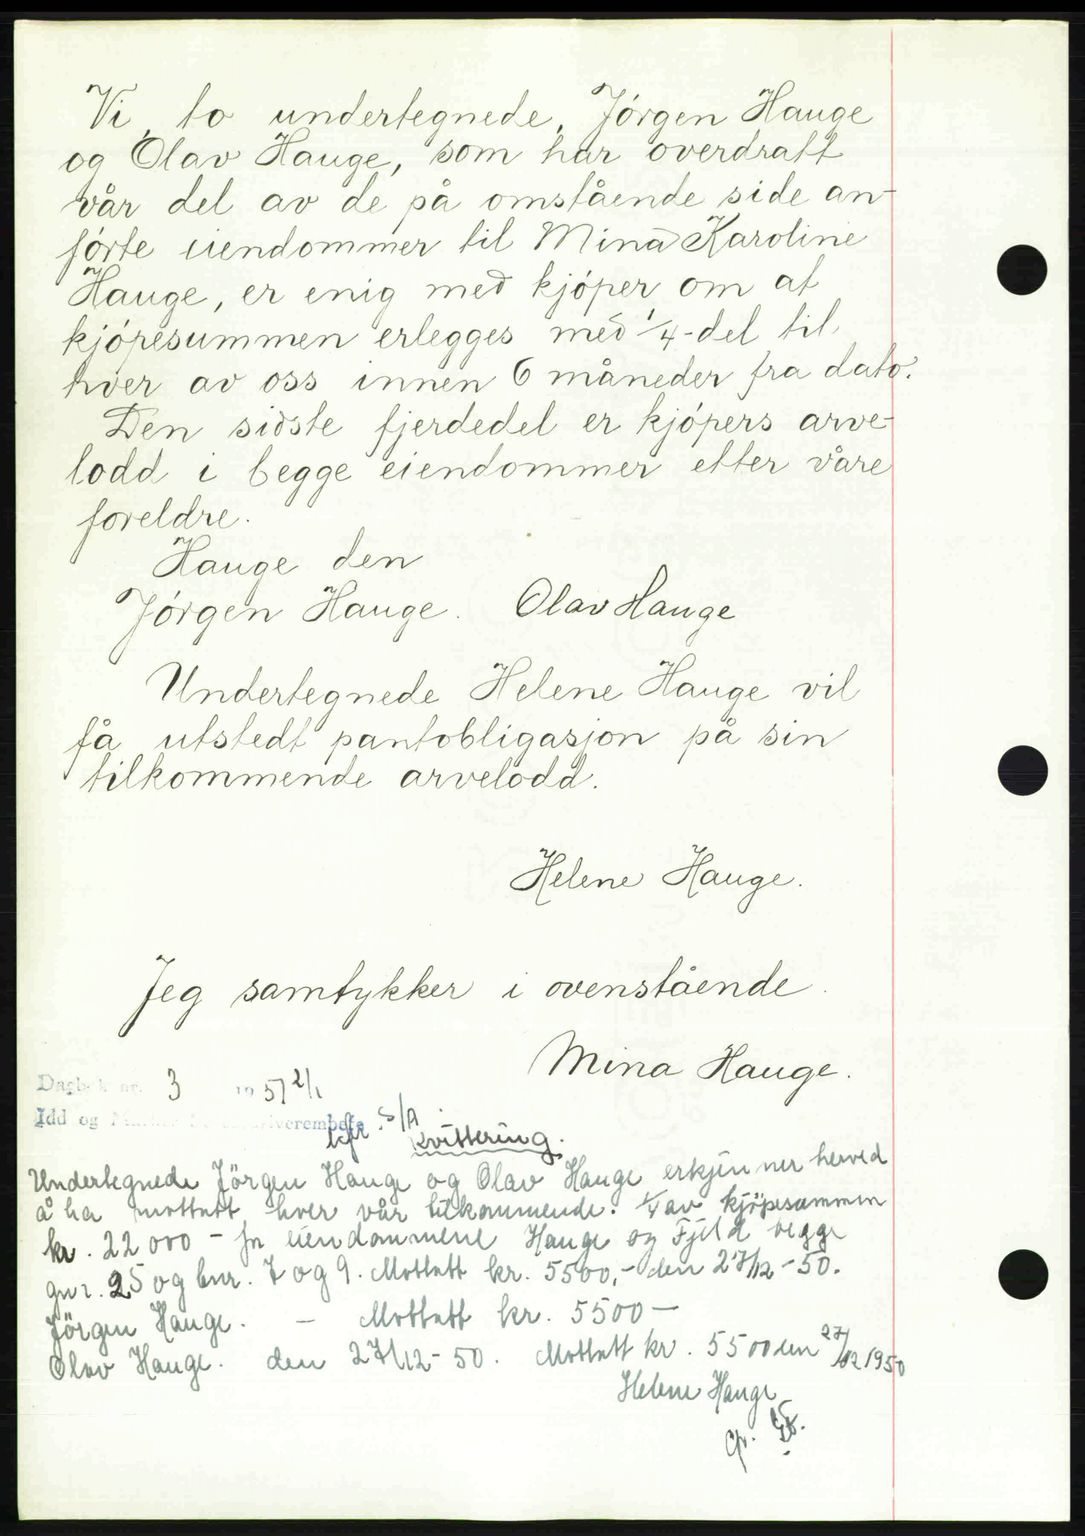 Vi, to undertegnede, Jórgen Hauge
og Olav Hauge, som har overdratt
vår del av de på omstående side an-
fórte eiendommer til Mina Karoline
Hauge, er enig med kjóper om at
kjópesummen erlegges med 1/4-del til
hver av oss innen 6 måneder fra dato.
Den sidste fjerdedel er kjópers arve-
lodd i begge eiendommer etter våre
foreldre.
Hauge den
Jórgen Hauge. Olav Hauge
Undertegnede Helene Hauge vil
få utstedt pantobligasjon på sin
tilkommende arvelodd.
Helene Hauge.
Jeg samtykker i ovenstående.
Mina Hauge.
Dagbok nr. 3 1951 2/1
Idd og Marker Sorenskriverembete
Kvittering.
Undertegnede Jörgen Hauge og Olav Hauge erkjenner herved
å ha mottatt hver vår tilkommende 1/4 av kjöpesummen
kr. 22 000 - for eiendommene Hauge og Fjeld begge
gnr. 25 og bnr. 7 og 9. Mottatt kr. 5500,- den 27/12-50.
Jörgen Hauge. - Mottatt kr. 5500 -
Olav Hauge. den 27/12-50. Mottatt kr. 5500 den 27/12 1950
Helene Hauge